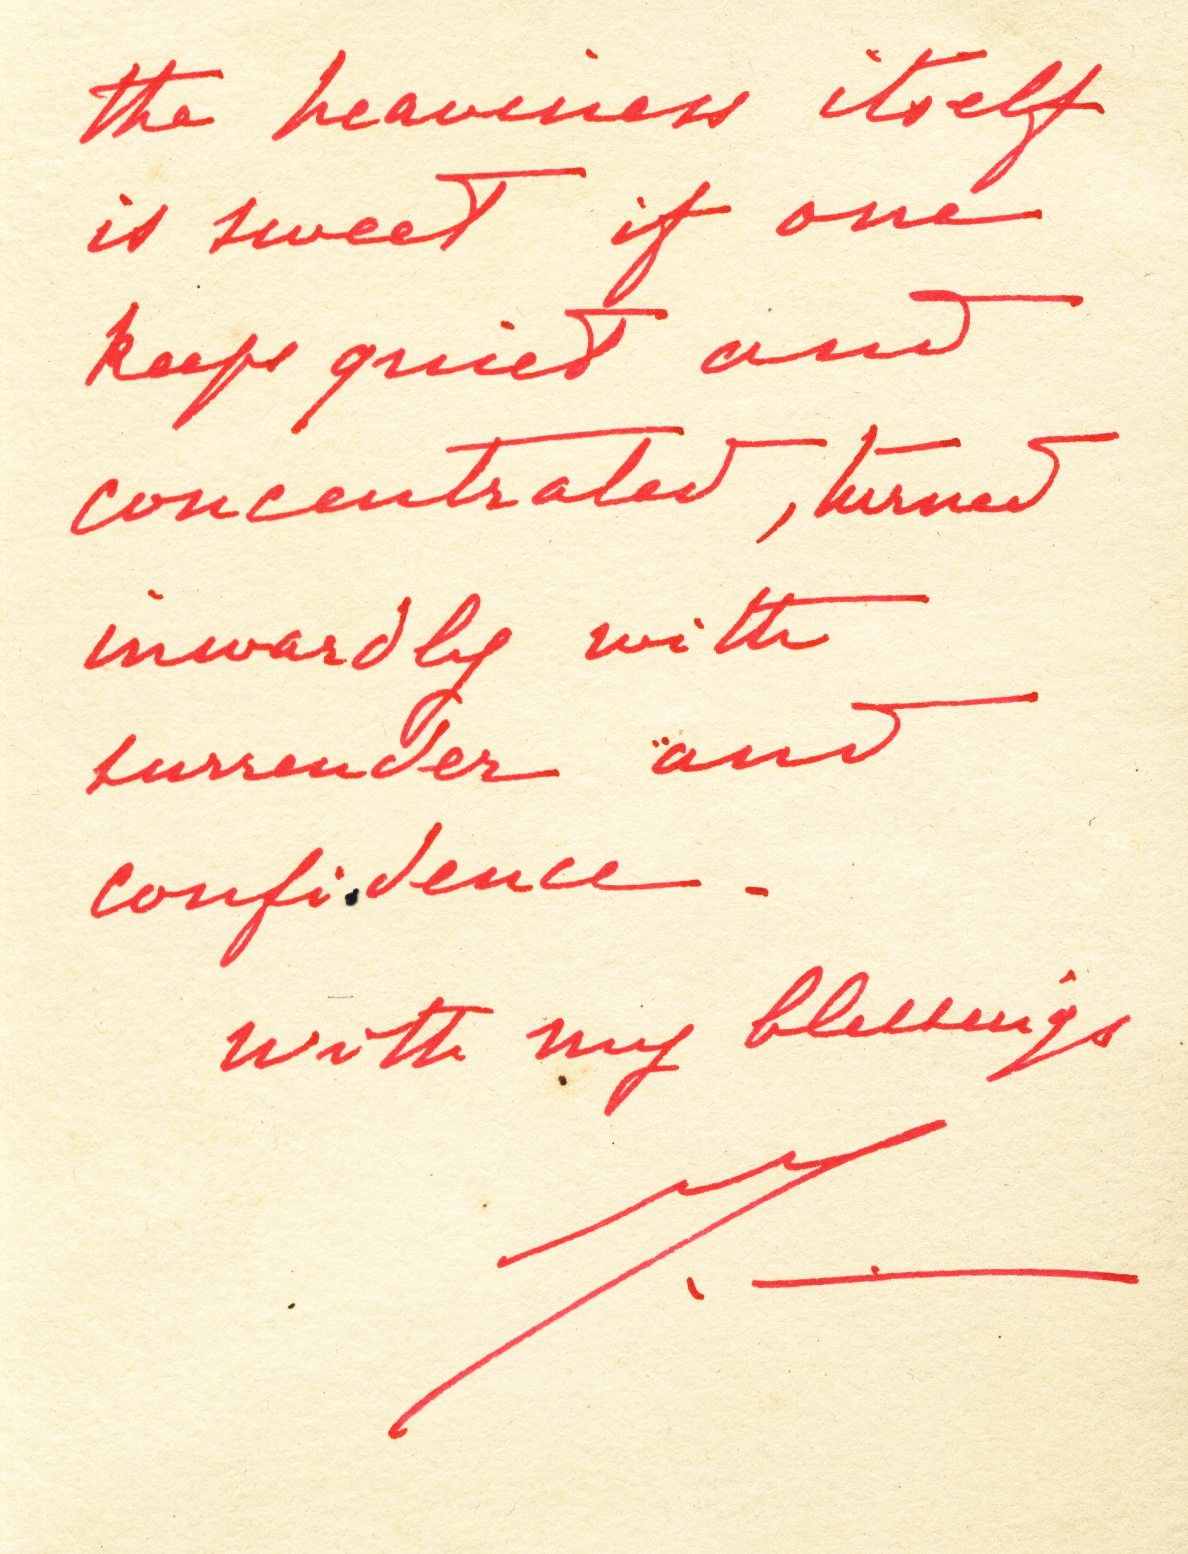 the heaviness itself
is sweet if one
keeps quiet and
concentrated, turned
inwardly with
surrender and
confidence. -
with my blessings